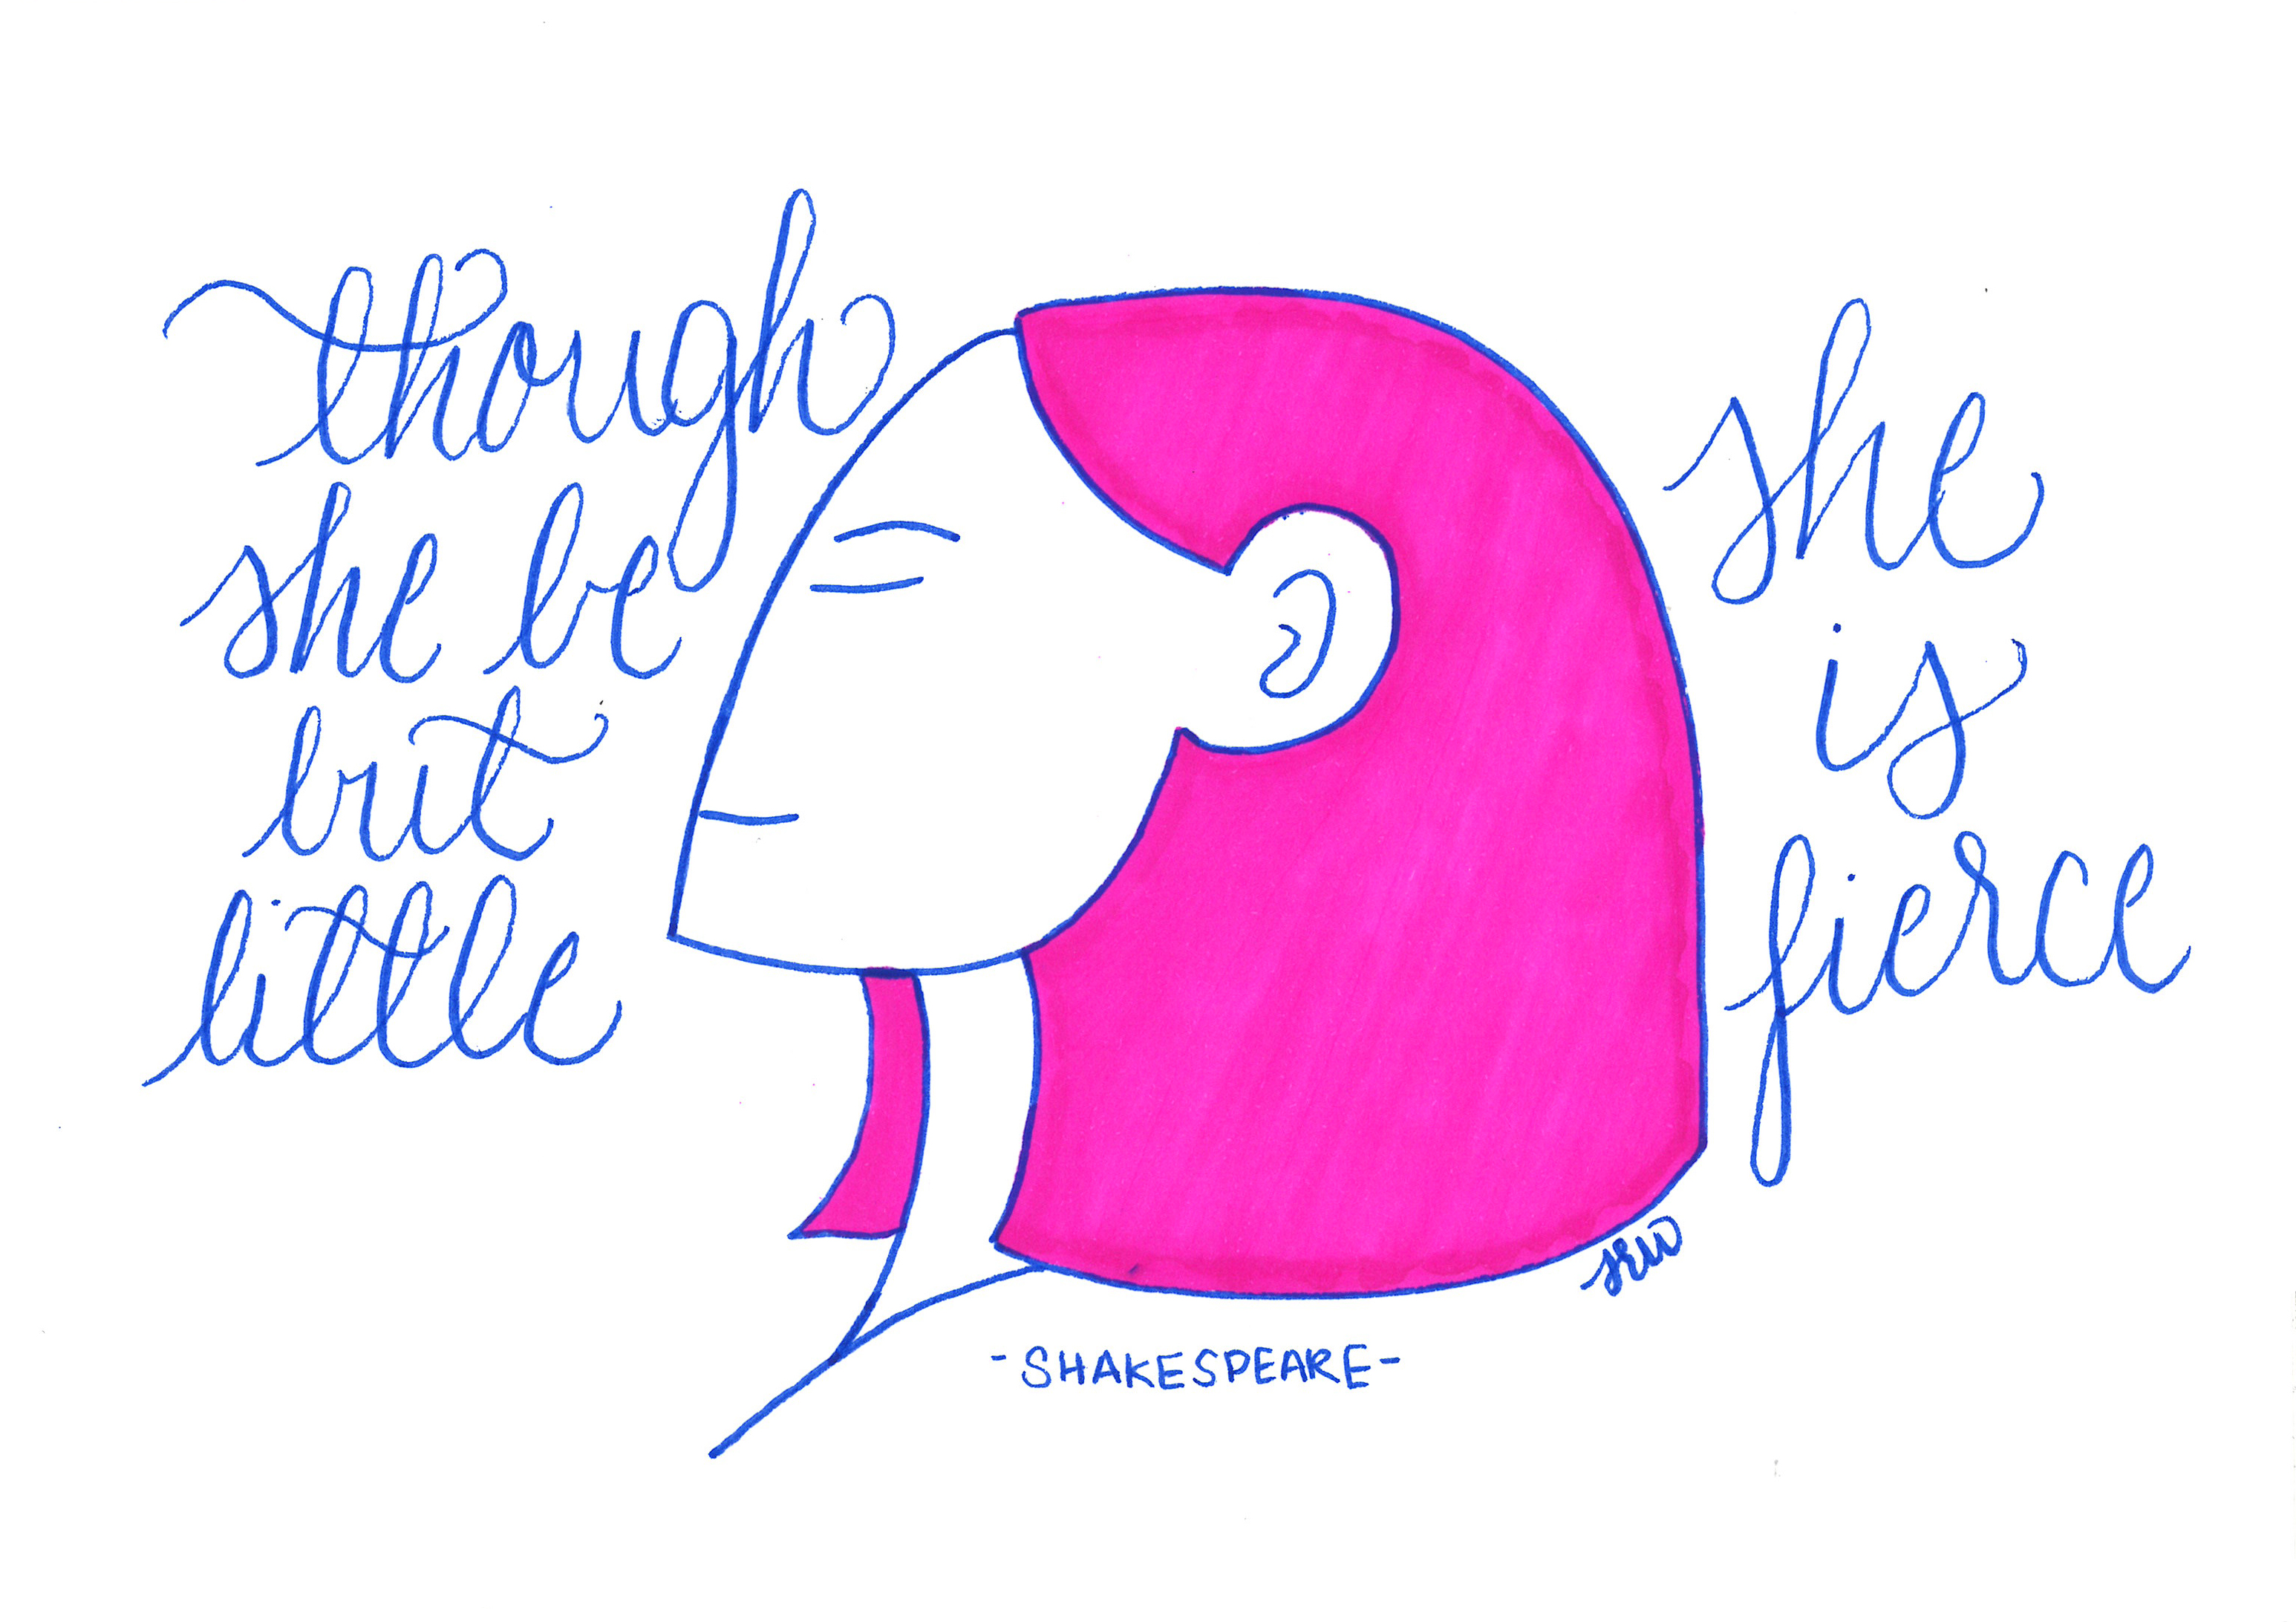 though
she be
but
little
she
is
fierce
-SHAKESPEARE-